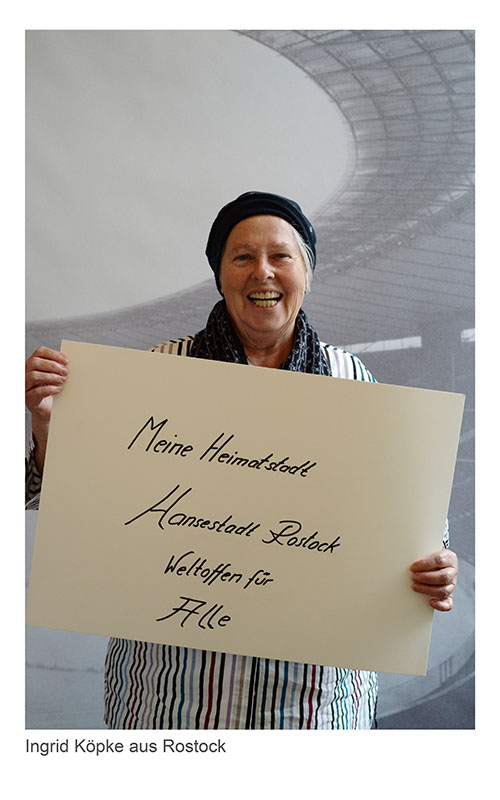 Meine Heimatstadt
Hansestadt Rostock
Weltoffen für
Alle
Ingrid Köpke aus Rostock